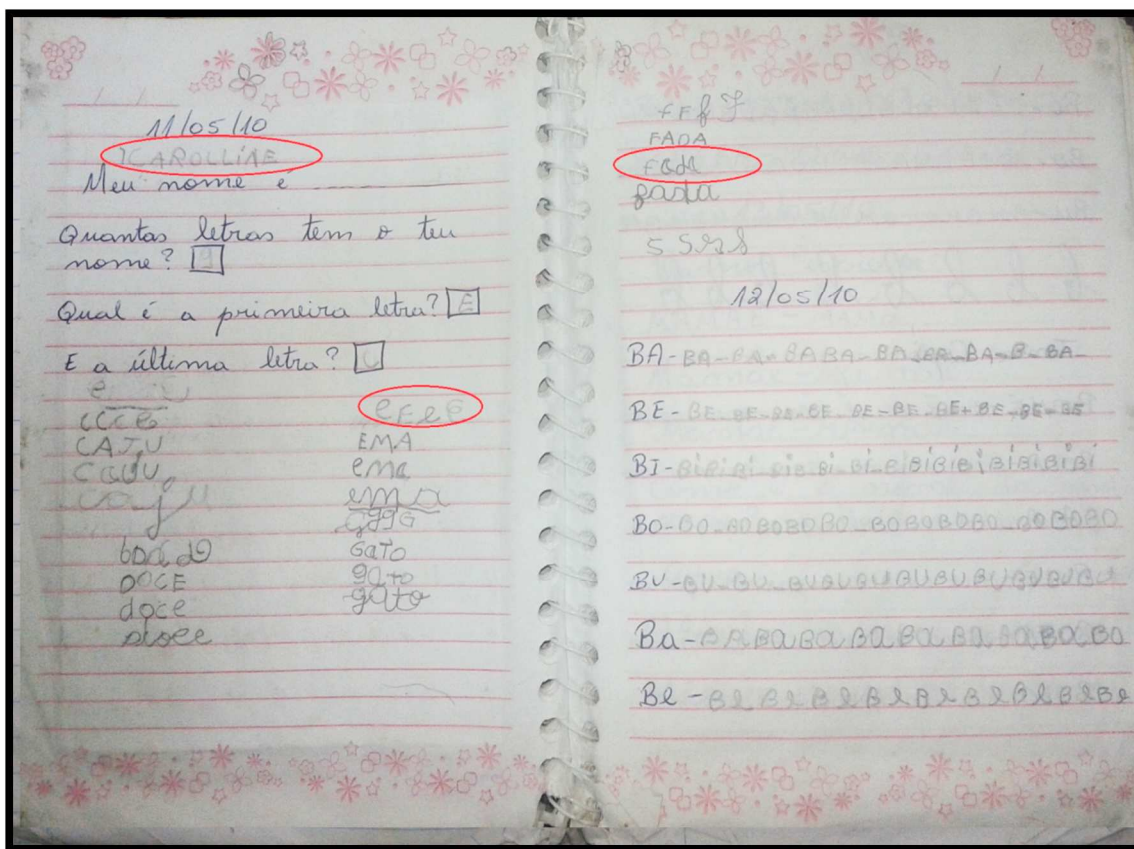 11/05/10
ICAROLLINE
Meu nome é
Quantas letras tem o teu
nome? 9
Qual é a primeira letra? E
E a última letra?
CAJU
caju
DOCE
doce
doce
e E e E
EMA
ema
ema
GATO
gato
gato
f F f F
FADA
fada
fada
S S s s
12/05/10
BA-BA-BA-BABA-BA-BA-BA-B-BA-
BE-BE-BE-BE-BE-BE-BE-BE-BE-BE-BE
BI-BiBiBi-BiB-Bi-Bi-BiBiBiBiBiBiBiBi
BO-BO-BOBOBOBO-BOBOBOBO-BOBOBO
BU-BU-BU-BUBUBUBUBUBUBUBUBU
Ba-BABaBaBaBaBaBaBaBa
Be-BeBeBeBeBeBeBeBeBe